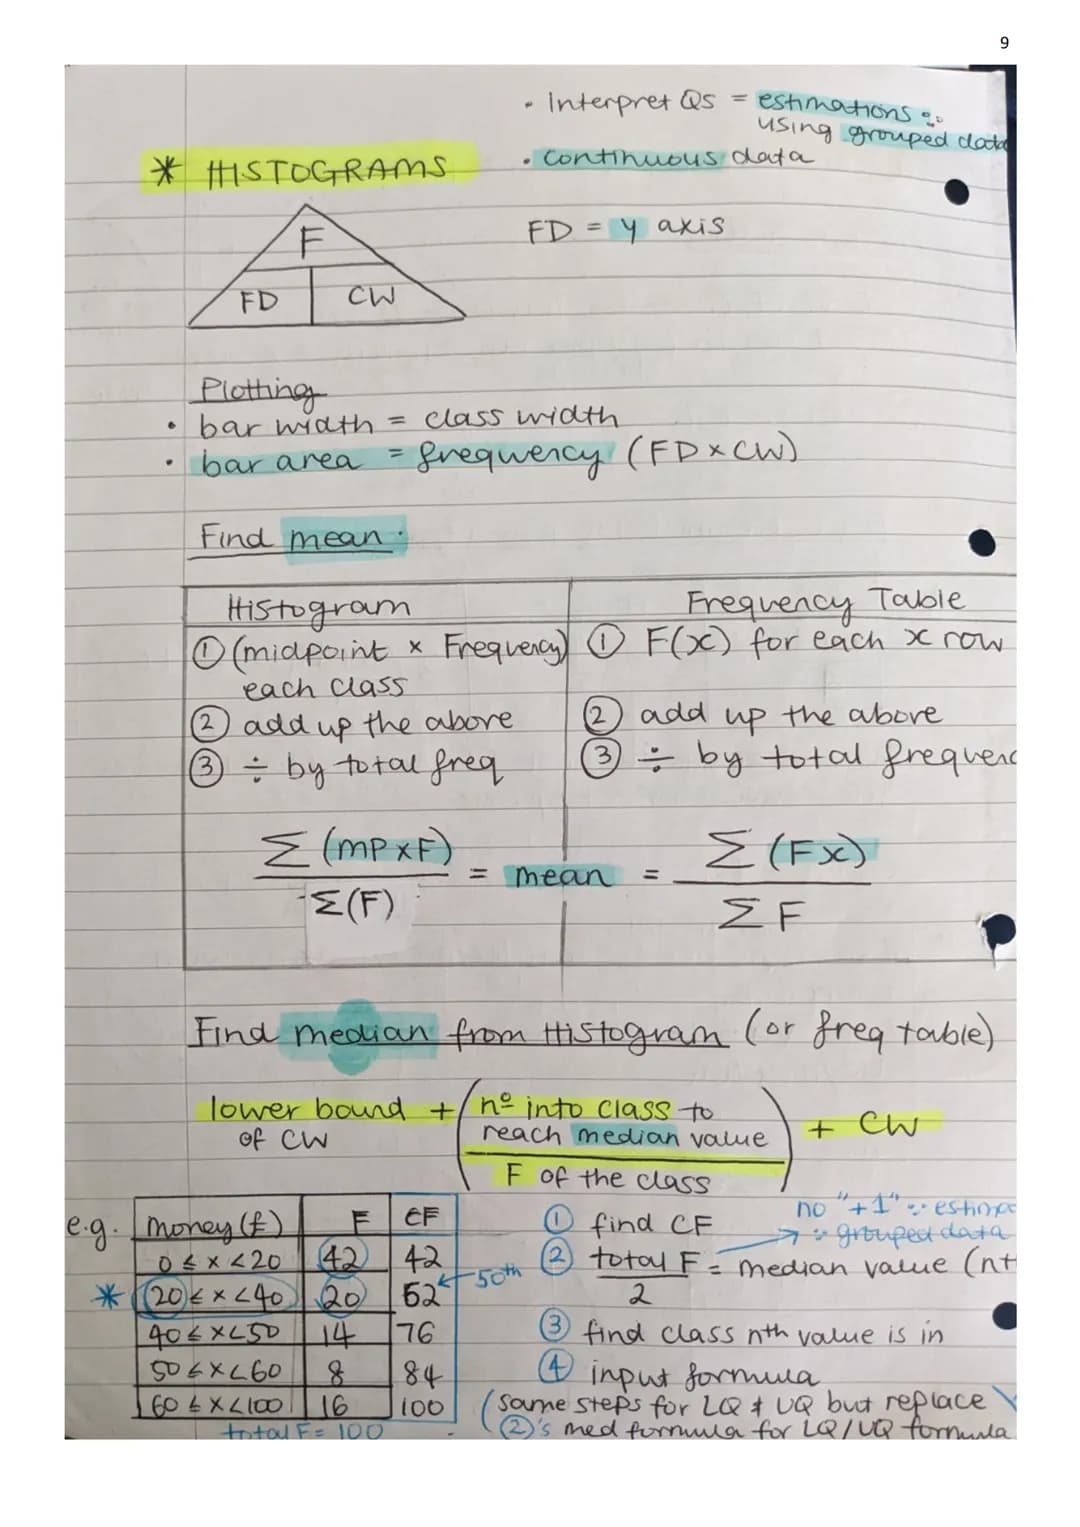 9
• Interpret Qs = estimations ∵
using grouped data
• continuous data
* HISTOGRAMS
FD = y axis
F
FD CW
Plotting
• bar width = class width
• bar area = frequency (FD x CW)
Find mean
Histogram
① (midpoint x Frequency)
each class
② add up the above
③ ÷ by total freq
Σ (MP x F)
Σ(F)
= mean =
Frequency Table
① F(x) for each x row
② add up the above
③ ÷ by total frequenc
Σ (Fx)
ΣF
Find median from Histogram (or freq table)
lower bound + (nº into class to
of CW reach median value
F of the class) + CW
e.g. money (£) F CF
0 ≤ x < 20 42 42
* 20 ≤ x < 40 20 62 ← 50th
40 ≤ x < 50 14 76
50 ≤ x < 60 8 84
60 ≤ x < 100 16 100
total F = 100
① find CF
no "+1" ∵ estima
→ ∵ grouped data
② total F = median value (nt
2
③ find class nth value is in
④ input formula
(same steps for LQ & UQ but replace
②'s med formula for LQ/UQ formula